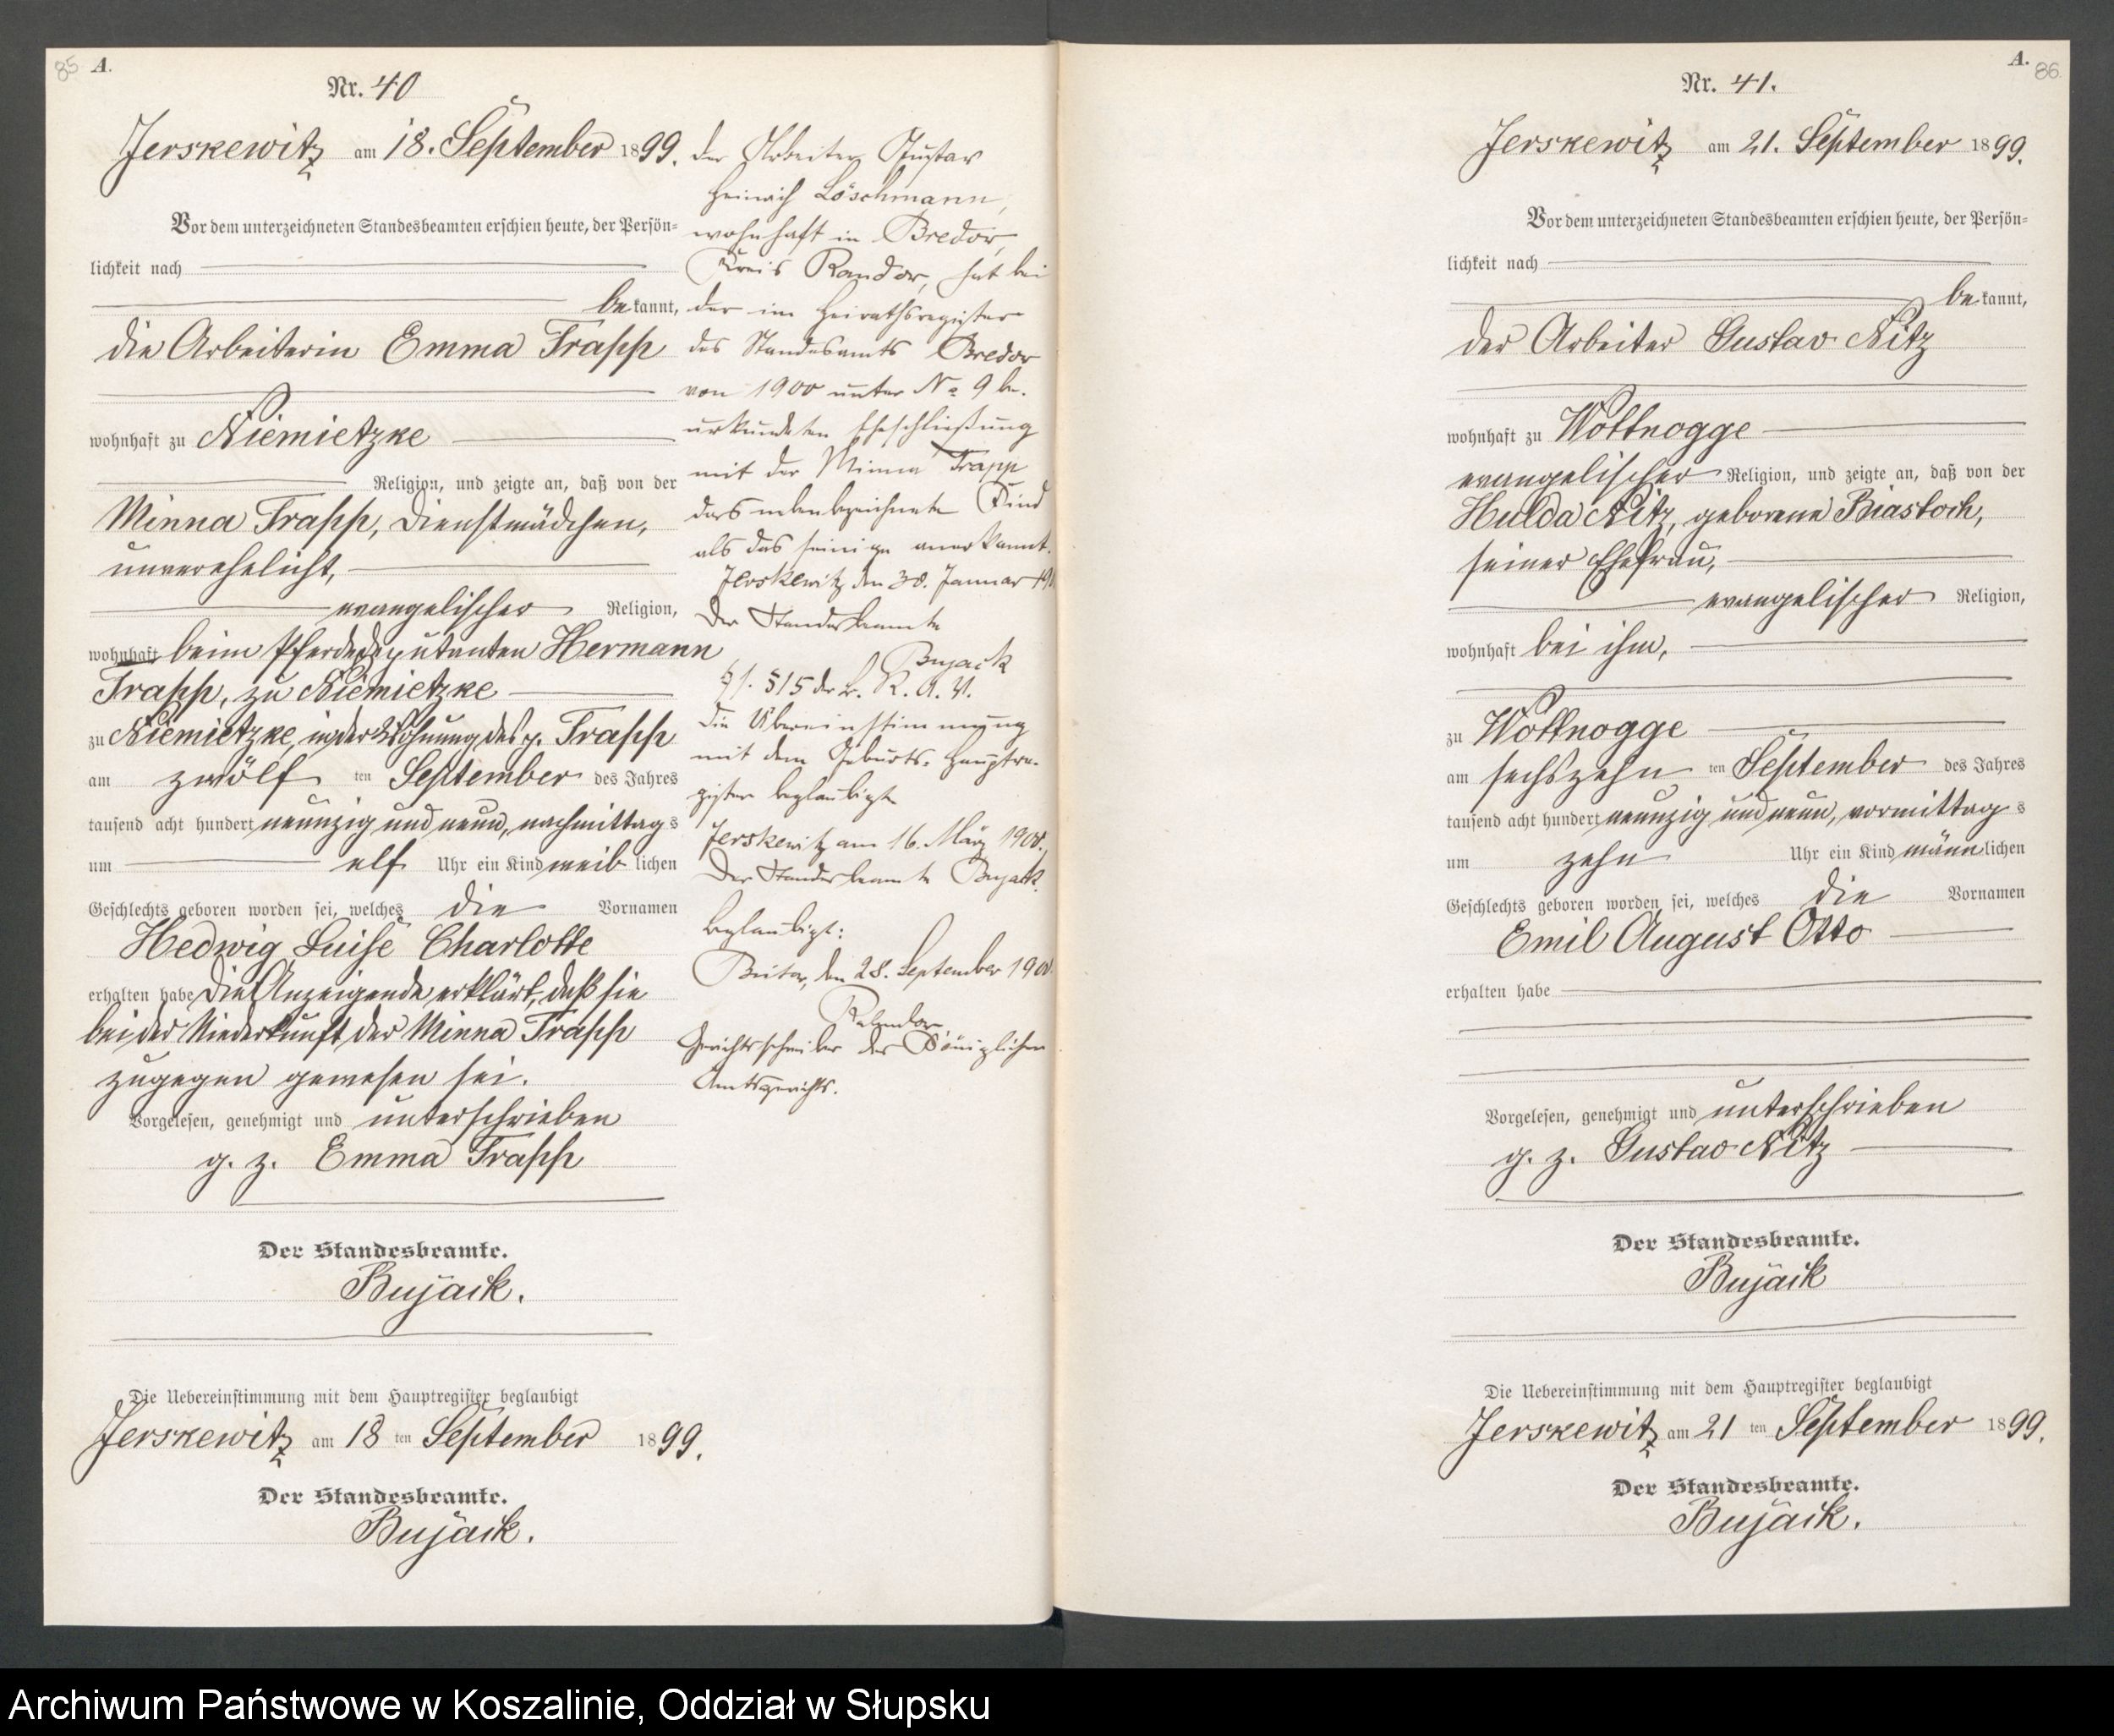 85 A.
Nr. 40
Jerskewitz am 18. September 1899.
Vor dem unterzeichneten Standesbeamten erschien heute, der Persön-
lichkeit nach
bekannt,
die Arbeiterin Emma Trapp
wohnhaft zu Niemietzke
Religion, und zeigte an, daß von der
Minna Trapp, Dienstmädchen,
unverehelicht,
evangelischer Religion,
wohnhaft beim Pferdedeputanten Hermann
Trapp, zu Niemietzke
zu Niemietzke, in der Wohnung des p. Trapp
am zwölf ten September des Jahres
tausend acht hundert neunzig und neun, nachmittags
um elf Uhr ein Kind weiblichen
Geschlechts geboren worden sei, welches die Vornamen
Hedwig Luise Charlotte
erhalten habe Die Anzeigende erklärt, daß sie
bei der Niederkunft der Minna Trapp
zugegen gewesen sei.
Vorgelesen, genehmigt und unterschrieben
g. z. Emma Trapp
Der Standesbeamte.
Bujack.
Die Uebereinstimmung mit dem Hauptregister beglaubigt
Jerskewitz am 18 ten September 1899.
Der Standesbeamte.
Bujack.
Der Arbeiter Gustav
Heinrich Löschmann,
wohnhaft in Bredow,
Kreis Randow, hat bei
der im Heirathsregister
des Standesamts Bredow
von 1900 unter No 9 be-
urkundeten Eheschließung
mit der Minna Trapp
das nebenbezeichnete Kind
als das seinige anerkannt.
Jerskewitz den 30. Januar
Der Standesbeamte
Bujack
§15 der
Die Übereinstimmung
mit dem Geburts-Hauptre-
gister beglaubigt
Jerskewitz am 16. März 1900.
Der Standesbeamte Bujack.
Beglaubigt:
Bütow, den 28. September 1900
Gerichtsschreiber des Königlichen
Amtsgerichts.
A. 86
Nr. 41.
Jerskewitz am 21. September 1899.
Vor dem unterzeichneten Standesbeamten erschien heute, der Persön-
lichkeit nach
bekannt,
der Arbeiter Gustav Nitz
wohnhaft zu Wottnogge
evangelischer Religion, und zeigte an, daß von der
Hulda Nitz, geborene Biastoch,
seiner Ehefrau,
evangelischer Religion,
wohnhaft bei ihm,
zu Wottnogge
am sechszehn ten September des Jahres
tausend acht hundert neunzig und neun, vormittags
um zehn Uhr ein Kind männlichen
Geschlechts geboren worden sei, welches die Vornamen
Emil August Otto
erhalten habe
Vorgelesen, genehmigt und unterschrieben
g. z. Gustav Nitz
Der Standesbeamte.
Bujack
Die Uebereinstimmung mit dem Hauptregister beglaubigt
Jerskewitz am 21 ten September 1899.
Der Standesbeamte.
Bujack.
Archiwum Państwowe w Koszalinie, Oddział w Słupsku